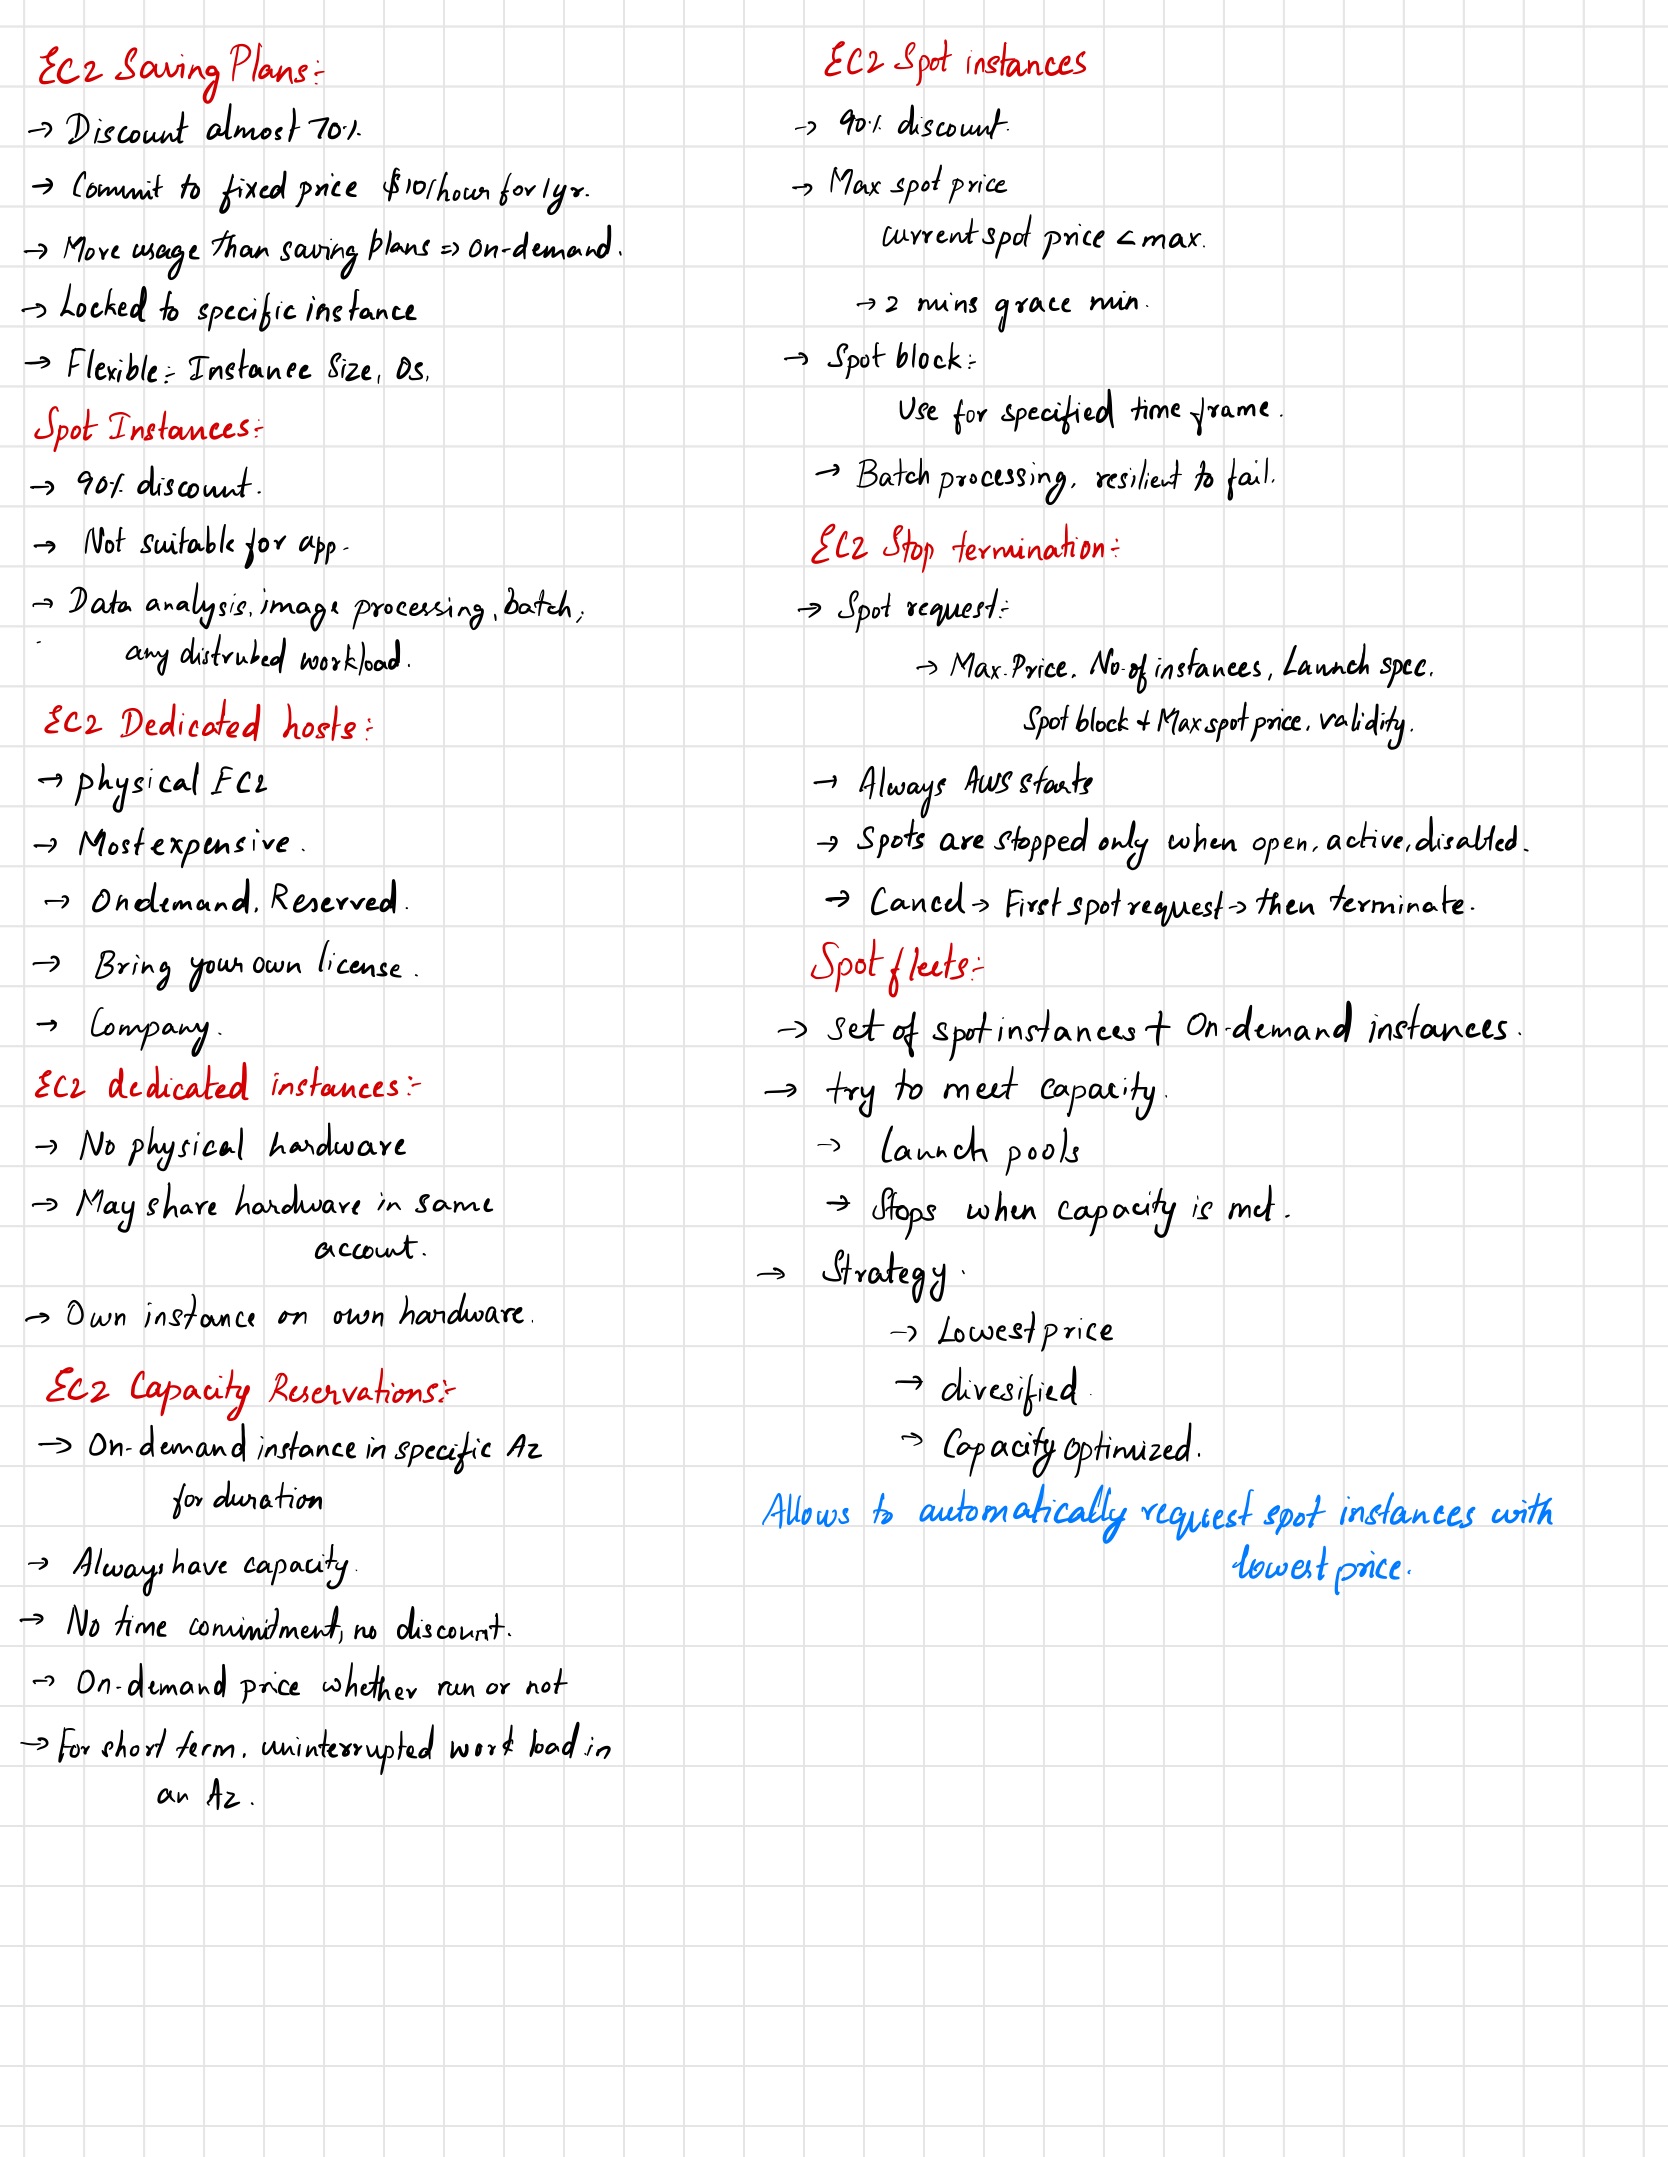 EC2 Saving Plans:-
→ Discount almost 70%.
→ Commit to fixed price $10/hour for 1yr.
→ More usage than saving plans => on-demand.
→ Locked to specific instance
→ Flexible:- Instance Size, OS,
Spot Instances:-
→ 90% discount.
→ Not suitable for app.
→ Data analysis, image processing, batch,
any distrubed workload.
EC2 Dedicated hosts:-
→ physical EC2
→ Most expensive.
→ Ondemand, Reserved.
→ Bring your own license.
→ Company.
EC2 dedicated instances:-
→ No physical hardware
→ May share hardware in same
account.
→ Own instance on own hardware.
EC2 Capacity Reservations:-
→ On-demand instance in specific Az
for duration
→ Always have capacity.
→ No time commitment, no discount.
→ On-demand price whether run or not
→ For short term, uninterrupted work load in
an Az.
EC2 Spot instances
→ 90% discount.
→ Max spot price
current spot price < max.
→ 2 mins grace min.
→ Spot block:-
Use for specified time frame.
→ Batch processing, resilient to fail.
EC2 Stop termination:-
→ Spot request:-
→ Max. Price, No. of instances, Launch spec.
Spot block + Max spot price, validity.
→ Always AWS starts
→ Spots are stopped only when open, active, disabled.
→ Cancel → First spot request → then terminate.
Spot fleets:-
→ Set of spot instances + On-demand instances.
→ try to meet capacity.
→ Launch pools
→ Stops when capacity is met.
→ Strategy.
→ Lowest price
→ divesified
→ Capacity optimized.
Allows to automatically request spot instances with
lowest price.